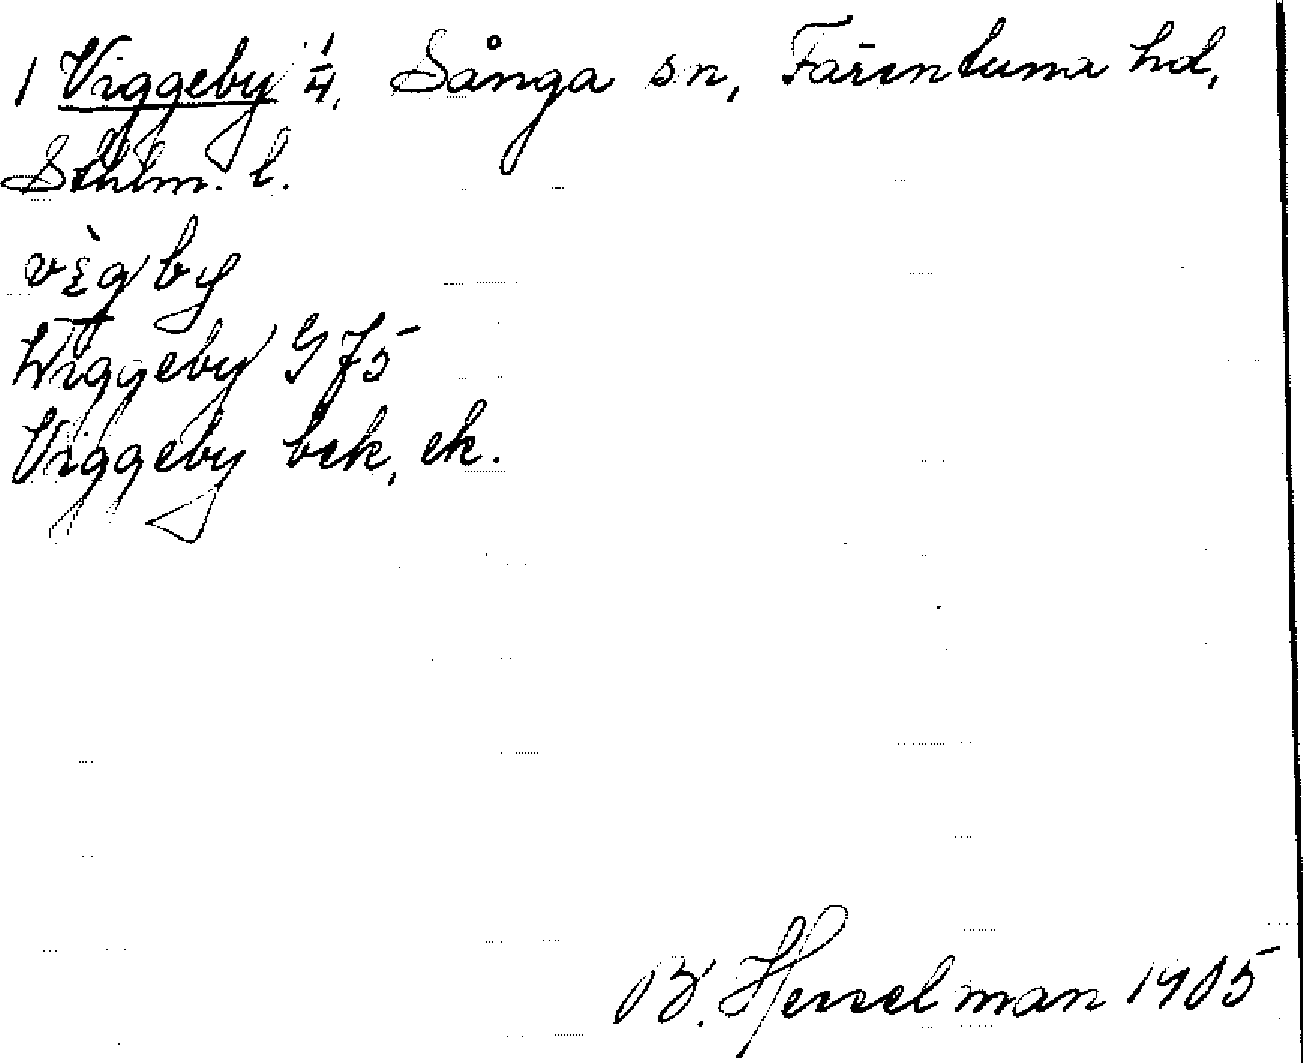 1 Viggeby 1/4, Sånga sn, Färentuna hd,
Sthlm. l.
vɪ̀gby
Wiggeby GJ5
Viggeby bek, ek.
B. Hesselman 1905